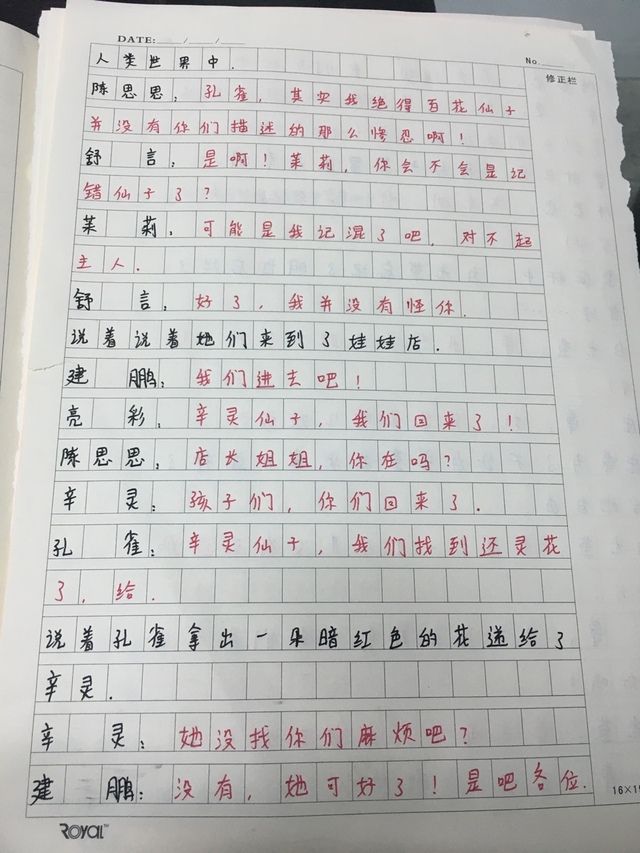 DATE: / /
No.
修正栏
人类世界中.
陈思思：孔雀，其实我绝得百花仙子
并没有你们描述的那么惨忍啊！
舒言：是啊！茉莉，你会不会是记
错仙子了？
茉莉：可能是我记混了吧，对不起
主人.
舒言：好了，我并没有怪你.
说着说着她们来到了娃娃店.
建鹏：我们进去吧！
亮彩：辛灵仙子，我们回来了！
陈思思：店长姐姐，你在吗？
辛灵：孩子们，你们回来了.
孔雀：辛灵仙子，我们找到还灵花
了，给.
说着孔雀拿出一朵暗红色的花递给了
辛灵.
辛灵：她没找你们麻烦吧？
建鹏：没有，她可好了！是吧各位.
ROYAL